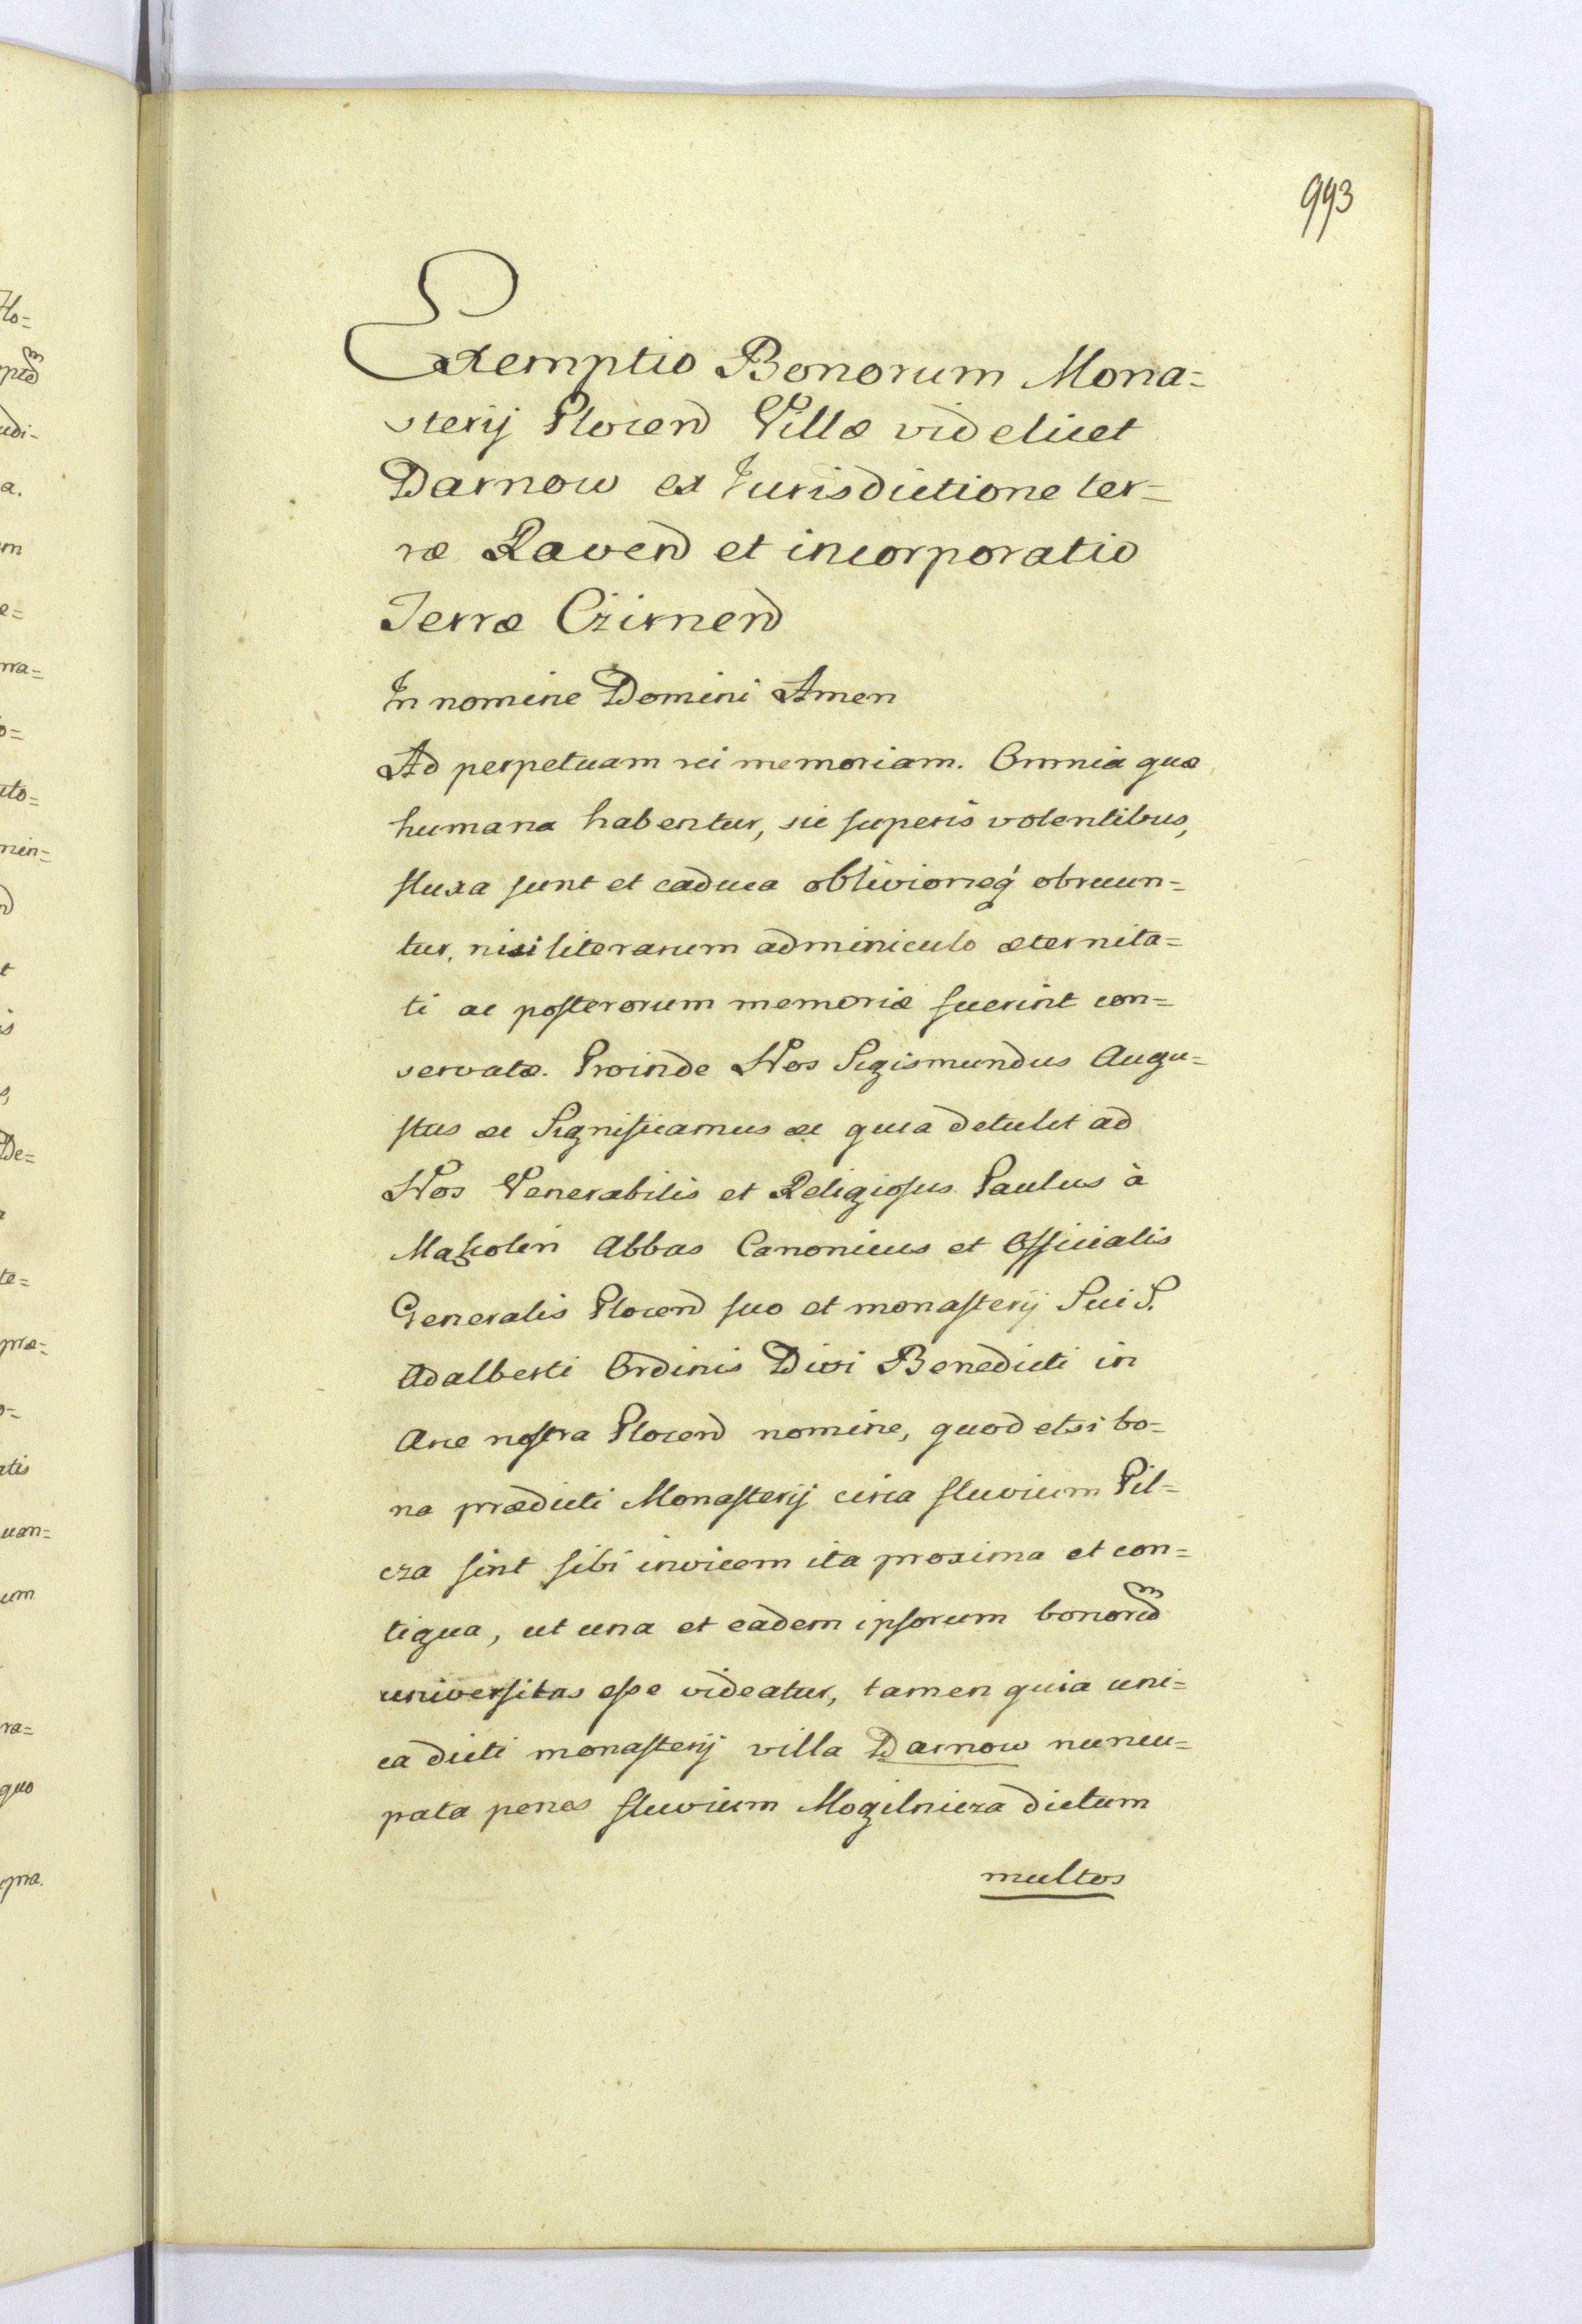 993
Exemptio Bonorum Mona=
sterij Plocen̄ Villæ videlicet
Darnow ex Jurisdictione ter=
ræ Raven̄ et incorporatio
Terræ Czirnen̄
In nomine Domini Amen
Ad perpetuam rei memoriam. Omnia quæ
humana habentur, sic superis volentibus,
fluxa sunt et caduca oblivioneq́ obruun=
tur, nisi literarum adminiculo æternita=
ti ac posterorum memoriæ fuerint con=
servatæ. Proinde Nos Sigismundus Augu=
stus &c Significamus &c quia detulit ad
Nos Venerabilis et Religiosus Paulus à
Abbas Canonicus et Officialis
Generalis Plocen̄ suo et monasterij Sui S.
Adalberti Ordinis Divi Benedicti in
Arce nostra Plocen̄ nomine, quod etsi bo=
na prædicti Monasterij circa fluvium Pil=
cza sint sibi invicem ita proxima et con=
tigua, ut una et eadem ipsorum bonorum̄
universitas esse videatur, tamen quia uni=
ca dicti monasterij villa Darnow nuncu=
pata penes fluvium Mogilnicza dictum
multos
Flo=
udi-
a.
m
e=
rra=
o=
uto=
nen=
t
is
s,
De=
te=
præ=
o=
atis
uan=
um
ra=
quo
pra.